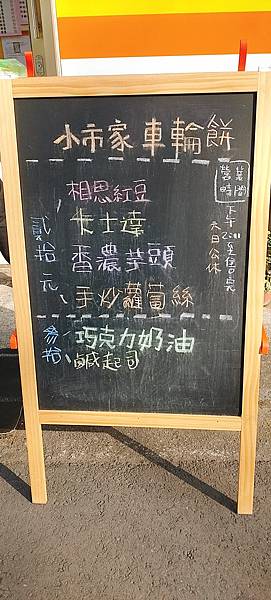 小市家車輪餅
營業時間
下午2:00至售完
六日公休
貳拾元
相思紅豆
卡士達
香濃芋頭
手炒蘿蔔絲
參拾
巧克力奶油
鹹起司